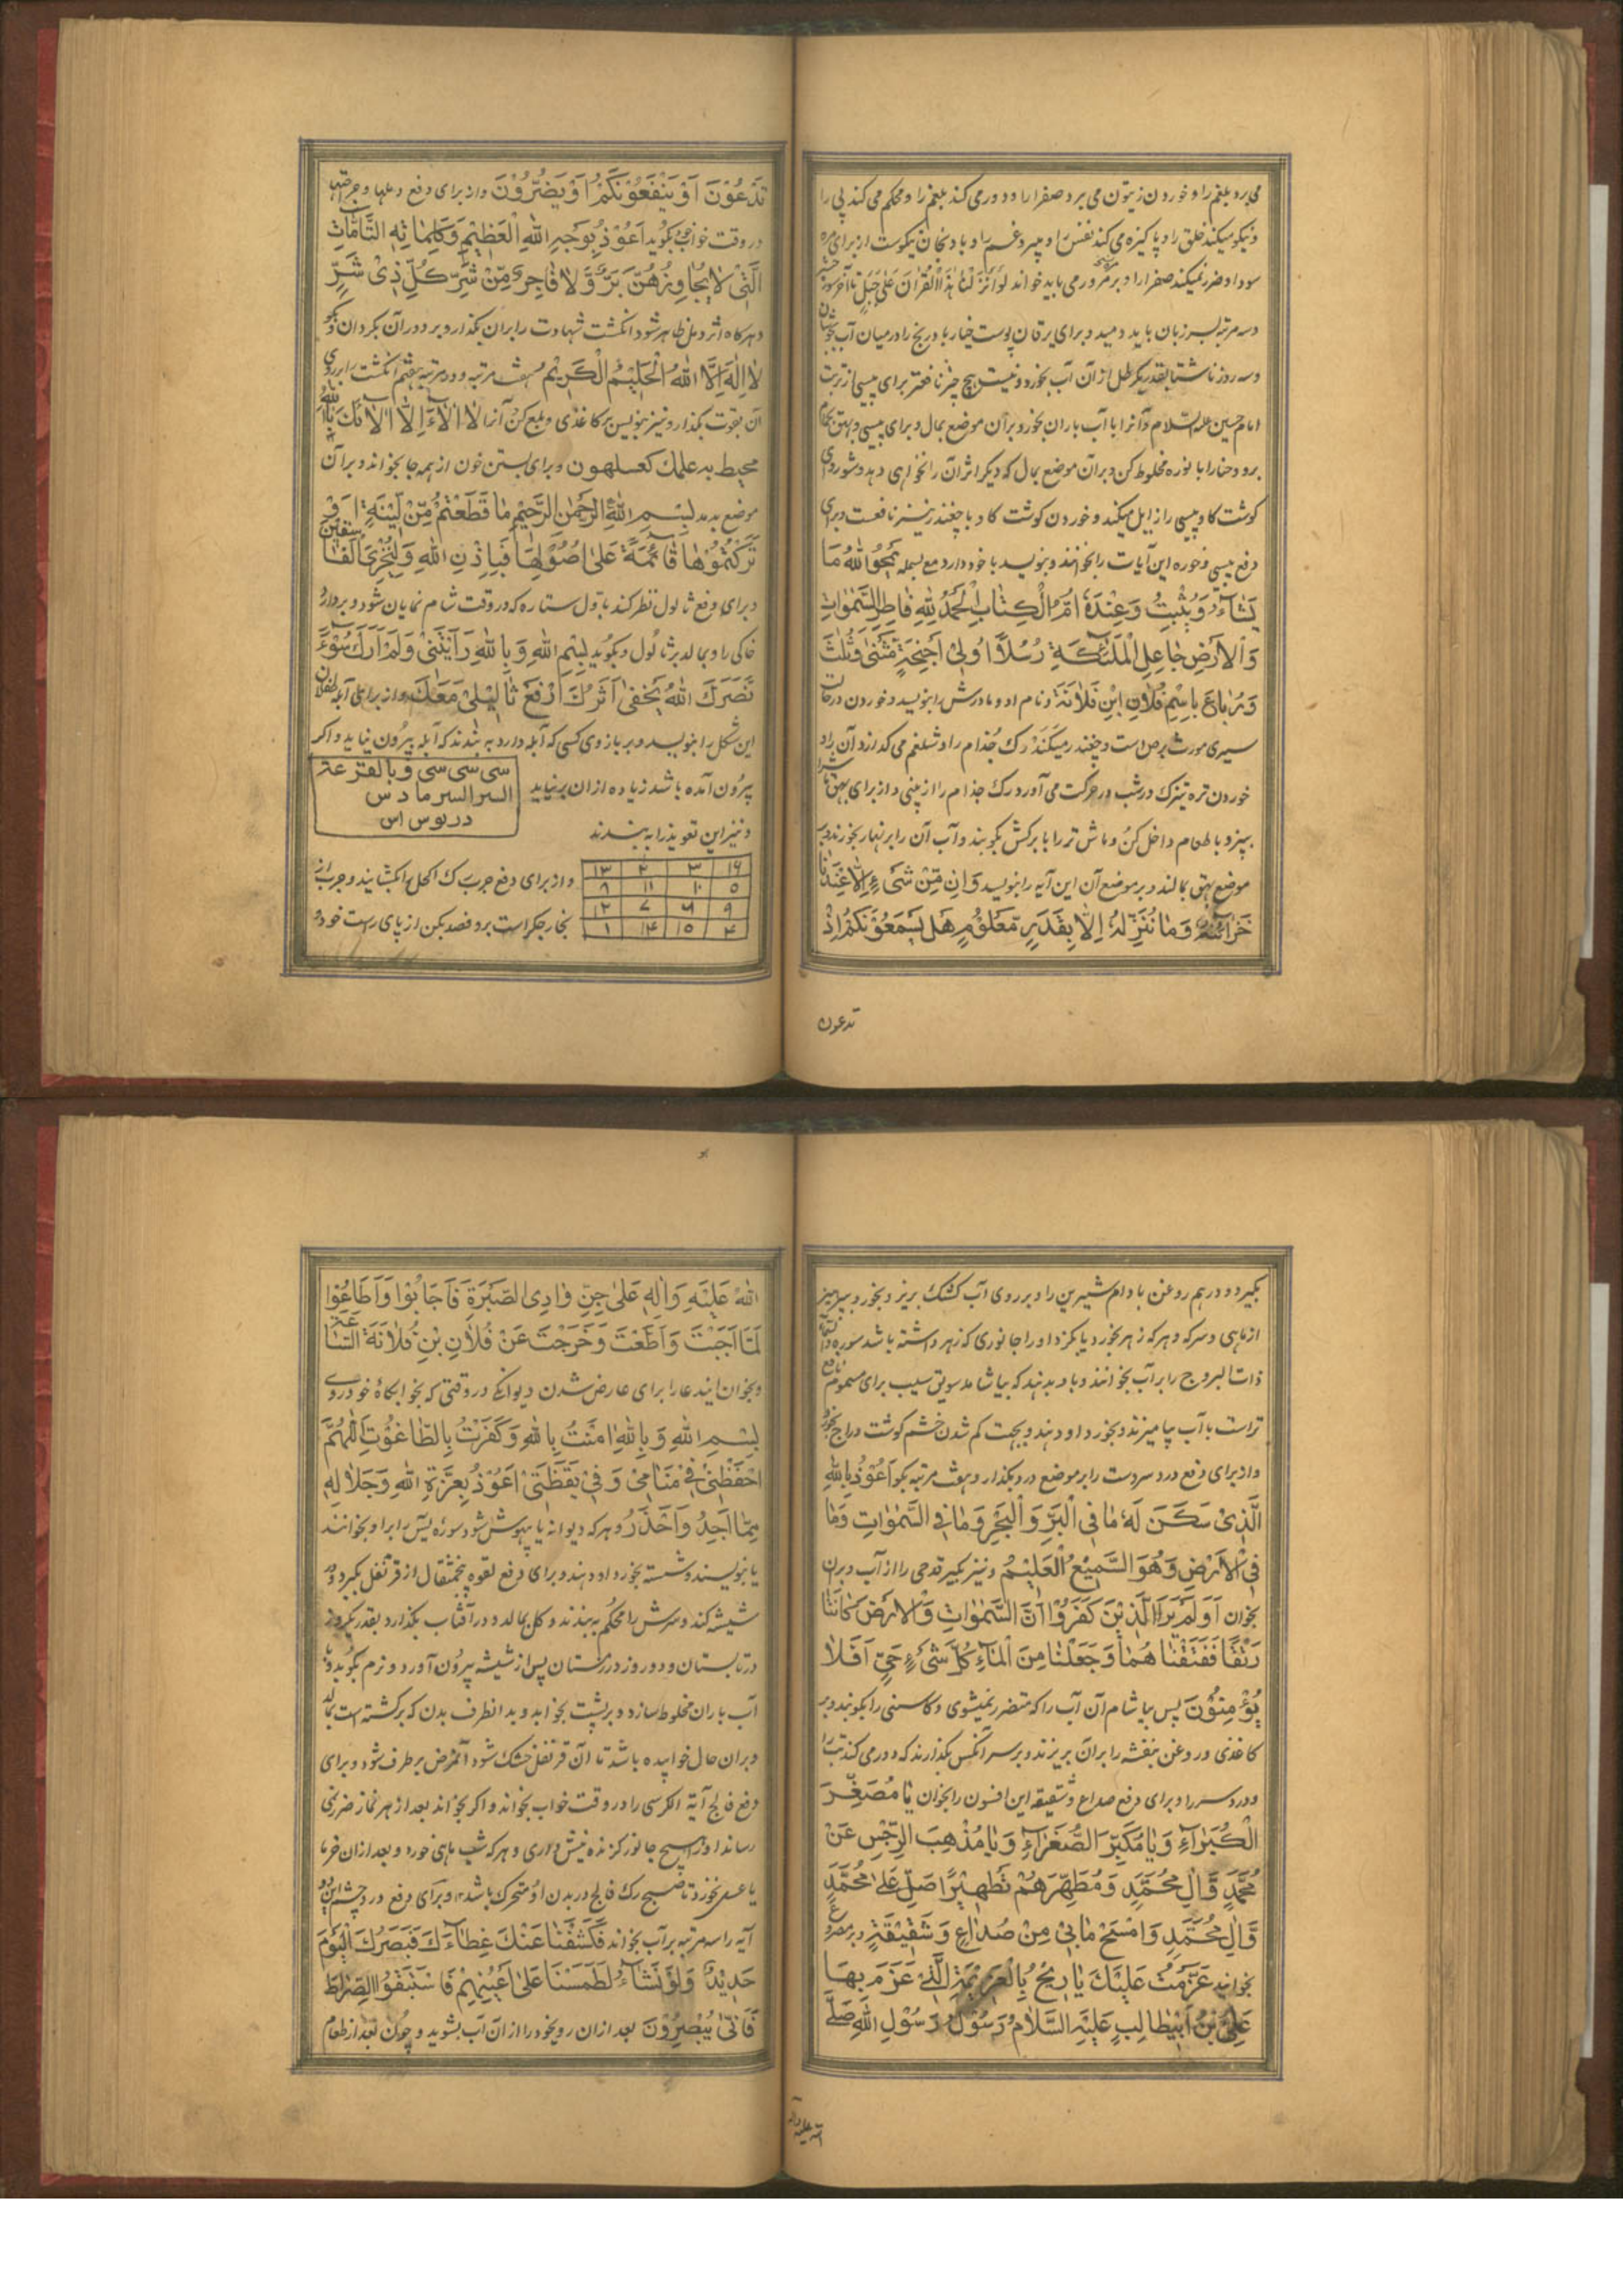 می برد بلغم را و خوردن زیتون می برد صفرا را و دور می کند بلغم را و محکم می کند پی را
و نیکو میکند خلق را و پاکیزه می کند نفس را و میبرد غم را و بادنجان نیکوست از برای مره
سودا و ضرر نمیکند صفرا را و بر می باید خواند لَوْ اَنْزَلْنا هٰذَا الْقُرْانَ عَلیٰ جَبَلٍ تا آخر سوره حشر
و سه مرتبه بر زبان باید دمید و برای یرقان پوست خیار با دریخ را در میان آب بجوشان
و سه روز ناشتا بقدر یکرطل از آن آب بخورد و نیست هیچ چیز نافعتر برای پیسی از تربت
امام حسین علیه السلام و آنرا با آب باران بخور و بر آن موضع بمال و برای پیسی و بهق بحمام
برو و حنا را با نوره مخلوط کن و بر آن موضع بمال که دیگر اثر آن را نخواهی دید و شوربای
گوشت گاو پیسی را زایل میکند و خوردن گوشت گاو با چغندر نیز نافعست و برای
دفع پیسی و خوره این آیات را بخوانند و بنویسد با خود دارد مع بسمله یَمْحُو اللّٰهُ مَا
یَشٰآءُ وَیُثْبِتُ وَعِنْدَهُ اُمُّ الْکِتٰابِ اَلْحَمْدُ لِلّٰهِ فٰاطِرِ السَّمٰوٰاتِ
وَالْاَرْضِ جٰاعِلِ الْمَلٰٓئِکَةِ رُسُلًا اُولِیْ اَجْنِحَةٍ مَثْنٰی وَثُلٰثَ
وَرُبٰاعَ بِاسْمِ فُلٰانِ ابْنِ فُلٰانَةَ و نام او و مادرش را بنویسد و خوردن در حالت
سیری مورث برص است و چغندر میکند رک جذام را و شلغم می گدازد آن را و
خوردن تره تیزک در شب در حرکت می آورد رک جذام را از بینی و از برای بهق ماش را
بپز و با طعام داخل کن و ماش تر را با برکش بکوبند و آب آن را بر نهار بخورند و بر
موضع بهق بمالند و بر موضع آن این آیه را بنویسد وَاِنْ مِّنْ شَیْءٍ اِلّٰا عِنْدَنٰا
خَزٰآئِنُهُ وَمٰا نُنَزِّلُهُ اِلّٰا بِقَدَرٍ مَّعْلُوْمٍ هَلْ یَسْمَعُوْنَکُمْ اِذْ
تدعون
تَدْعُوْنَ اَوْ یَنْفَعُوْنَکُمْ اَوْ یَضُرُّوْنَ و از برای دفع دملها و جراحتها
در وقت خواب بگوید اَعُوْذُ بِوَجْهِ اللّٰهِ الْعَظِیْمِ وَکَلِمٰاتِهِ التّٰامّٰاتِ
الَّتِیْ لٰا یُجٰاوِزُهُنَّ بَرٌّ وَّلٰا فٰاجِرٌ مِّنْ شَرِّ کُلِّ ذِیْ شَرٍّ
و هرکاه اثر دمل ظاهر شود انگشت شهادت را بر آن بگذار و بر دور آن بگردان و بگو
لٰا اِلٰهَ اِلَّا اللّٰهُ الْحَلِیْمُ الْکَرِیْمُ هفت مرتبه و در مرتبه هفتم انگشت را بر روی
آن بقوت بگذار و نیز بنویس بر کاغذی و بلع کن آنرا لٰا اٰلٰاءَ اِلّٰا اٰلٰائُکَ یا اللّٰه
محیط به علمک کعسلهون و برای بستن خون از همه جا بخواند و بر آن
موضع بدمد بِسْمِ اللّٰهِ الرَّحْمٰنِ الرَّحِیْمِ مٰا قَطَعْتُمْ مِّنْ لِّیْنَةٍ اَوْ
تَرَکْتُمُوْهٰا قٰآئِمَةً عَلیٰ اُصُوْلِهٰا فَبِاِذْنِ اللّٰهِ وَلِیُخْزِیَ الْفٰاسِقِیْنَ
و برای دفع ثالول نظر کند باول ستاره که در وقت شام نمایان شود و بردارد
خاکی را و بمالد بر ثالول و بگوید بِسْمِ اللّٰهِ وَبِاللّٰهِ رَاَیْتَنِیْ وَلَمْ اَرَکَ سُوْءَ
نَصَرَکَ اللّٰهُ یَخْفیٰ اَثَرُکَ اِرْفَعْ ثٰالِیْلِیْ مَعَکَ و از برای آبله طفلان
این شکل را بنویسد و بر بازوی کسی که آبله دارد به بندند که آبله بیرون نیاید و اگر
بیرون آمده باشد زیاده از ان بر نیاید
سی سی سی و بالقرعة
السر السر مادس
دربوس اس
و نیز این تعویذ را به بندند
۱۶ ۳ ۲ ۱۳
۵ ۱۰ ۱۱ ۸
۹ ۶ ۷ ۱۲
۴ ۱۵ ۱۴ ۱
و از برای دفع جرب رک اکحل بکشایند و جرب از
بخار جگر است برو فصد بکن از پای راست خود دو
بگیر دو درهم روغن بادام شیرین را و بر روی آب کشک بریز و بخور و بپرهیز
از ماهی و سرکه و هر که زهر بخورد یا بگزد او را جانوری که زهر داشته باشد سوره و السماء
ذات البروج را بر آب بخوانند و باو بدهند که بیاشامد و سویق سیب برای مسموم نافع
تر است با آب بیامیزند و بخورد او دهند و بجهت کم شدن خشم گوشت دراج بخور
و از برای دفع درد سر دست را بر موضع درد بگذار و هفت مرتبه بگو اَعُوْذُ بِاللّٰهِ
الَّذِیْ سَکَنَ لَهُ مٰا فِی الْبَرِّ وَالْبَحْرِ وَمٰا فِی السَّمٰوٰاتِ وَمٰا
فِی الْاَرْضِ وَهُوَ السَّمِیْعُ الْعَلِیْمُ و نیز بگیر قدحی را از آب و بران
بخوان اَوَلَمْ یَرَ الَّذِیْنَ کَفَرُوْا اَنَّ السَّمٰوٰاتِ وَالْاَرْضَ کٰانَتٰا
رَتْقًا فَفَتَقْنٰا هُمٰا وَجَعَلْنٰا مِنَ الْمٰاءِ کُلَّ شَیْءٍ حَیٍّ اَفَلٰا
یُؤْمِنُوْنَ پس بیاشام آن آب را که متضرر نمیشوی و کاسنی را بکوبند و بر
کاغذی و روغن بنفشه را بر آن بریزند و بر سر آنکس بگذارند که دور می کند تب را
و درد سر را و برای دفع صداع و شقیقه این افسون را بخوان یٰا مُصَغِّرَ
الْکُبَرٰاءِ وَیٰا مُکَبِّرَ الصُّغَرٰاءِ وَیٰا مُذْهِبَ الرِّجْسِ عَنْ
مُحَمَّدٍ وَّاٰلِ مُحَمَّدٍ وَمُطَهِّرَهُمْ تَطْهِیْرًا صَلِّ عَلیٰ مُحَمَّدٍ
وَّاٰلِ مُحَمَّدٍ وَامْسَحْ مٰا بِیْ مِنْ صُدٰاعٍ وَشَقِیْقَةٍ و بر مصروع
بخوانید عَزَمْتُ عَلَیْکَ یٰا رِیْحُ بِالْعَزِیْمَةِ الَّتِیْ عَزَمَ بِهٰا
عَلِیُّ بْنُ اَبِیْطٰالِبٍ عَلَیْهِ السَّلٰامُ رَسُوْلُ رَسُوْلِ اللّٰهِ صَلَّی
الله علیه واله
اللّٰهُ عَلَیْهِ وَاٰلِهِ عَلیٰ جِنِّ وٰادِی الصَّبْرَةِ فَاَجٰابُوْا وَاَطٰاعُوْا
لَمّٰا اَجَبْتَ وَاَطَعْتَ وَخَرَجْتَ عَنْ فُلٰانِ بْنِ فُلٰانَةَ السّٰاعَةَ
و بخوان ایندعا را برای عارض شدن دیوانکی در وقتی که بخوابگاه خود روی
بِسْمِ اللّٰهِ وَبِاللّٰهِ اٰمَنْتُ بِاللّٰهِ وَکَفَرْتُ بِالطّٰاغُوْتِ اَللّٰهُمَّ
احْفَظْنِیْ فِیْ مَنٰامِیْ وَفِیْ یَقْظَتِیْ اَعُوْذُ بِعِزَّةِ اللّٰهِ وَجَلٰالِهِ
مِمّٰا اَجِدُ وَاَحْذَرُ و هر که دیوانه یا بیهوش شود سوره یٰس را بر او بخوانند
یا بنویسند و شسته بخورد او دهند و برای دفع لقوه پنجمثقال از قرنفل بگیر و در
شیشه کند و سرش را محکم به بندند و گل بمالد و در آفتاب بگذارد بقدر یکروز
در تابستان و دو روز در زمستان پس از شیشه بیرون آورد و نرم بکوبد و با
آب باران مخلوط سازد و بر پشت بخوابد و بد انطرف بدن که برگشته است بمالد
و بران حال خوابیده باشد تا آن قرنفل خشک شود آنمرض برطرف شود و برای
دفع فالج آیة الکرسی را در وقت خواب بخواند و اگر بخواند بعد از هر نماز ضرر نمی
رساند او را هیچ جانور گزنده نیش داری و هر که شب ماهی خورد و بعد از ان خرما
یا عسل نخورد تا صبح رک فالج در بدن او متحرک باشد و برای دفع درد چشم این دو
آیه را سه مرتبه بر آب بخواند فَکَشَفْنٰا عَنْکَ غِطٰاءَکَ فَبَصَرُکَ الْیَوْمَ
حَدِیْدٌ وَلَوْ نَشٰآءُ لَطَمَسْنٰا عَلیٰ اَعْیُنِهِمْ فَاسْتَبَقُوا الصِّرٰاطَ
فَاَنّٰی یُبْصِرُوْنَ بعد ازان روی خود را از ان آب بشوید و چون بعد از طعام